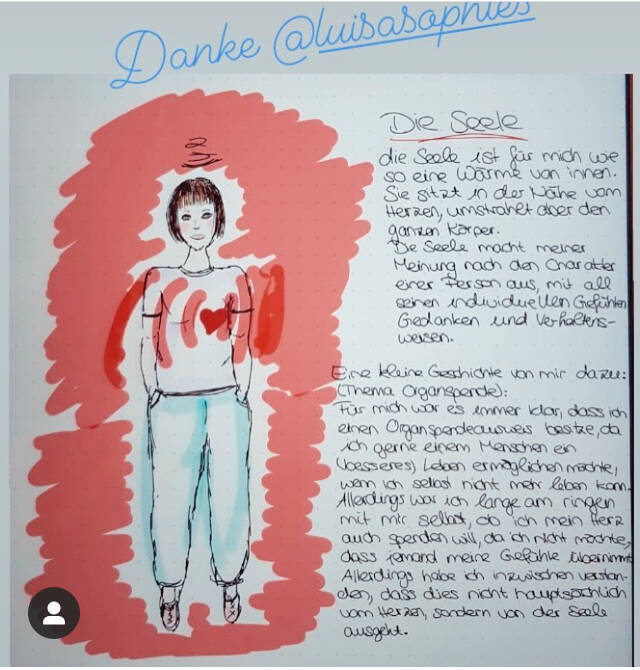 Danke @luisasophies
Die Seele
die Seele ist für mich wie
so eine Wärme von innen.
Sie sitzt in der Nähe vom
Herzen, umstrahlt aber den
ganzen Körper.
Die Seele macht meiner
Meinung nach den Charakter
einer Person aus, mit all
seinen individuellen Gefühlen
Gedanken und Verhaltens-
weisen.
Eine kleine Geschichte von mir dazu:
(Thema Organspende):
Für mich war es immer klar, dass ich
einen Organspendeausweis besitze, da
ich gerne einem Menschen ein
(besseres) Leben ermöglichen möchte,
wenn ich selbst nicht mehr leben kann.
Allerdings war ich lange am ringen
mit mir selbst, ob ich mein Herz
auch spenden will, da ich nicht möchte,
dass jemand meine Gefühle übernimmt
Allerdings habe ich inzwischen verstan-
den, dass dies nicht hauptsächlich
vom Herzen, sondern von der Seele
ausgeht.